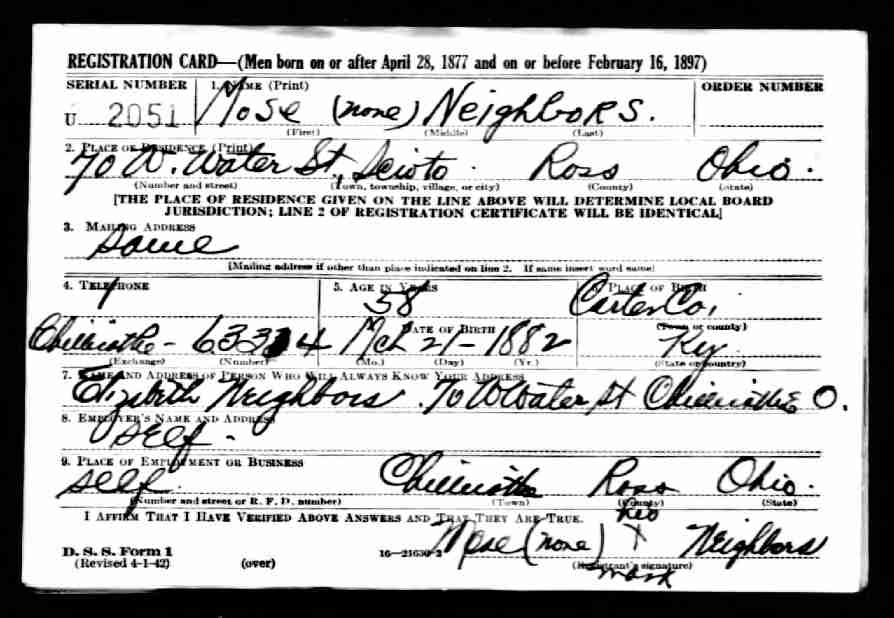 REGISTRATION CARD—(Men born on or after April 28, 1877 and on or before February 16, 1897)
SERIAL NUMBER 1. NAME (Print) ORDER NUMBER
U 2051 Mose (none) Neighbors.
(First) (Middle) (Last)
2. PLACE OF RESIDENCE (Print)
70 W. Water St., Scioto Ross Ohio.
(Number and street) (Town, township, village, or city) (County) (State)
[THE PLACE OF RESIDENCE GIVEN ON THE LINE ABOVE WILL DETERMINE LOCAL BOARD
JURISDICTION; LINE 2 OF REGISTRATION CERTIFICATE WILL BE IDENTICAL]
3. MAILING ADDRESS
Same
[Mailing address if other than place indicated on line 2. If same insert word same]
4. TELEPHONE 5. AGE IN YEARS 6. PLACE OF BIRTH
58 Carter Co,
DATE OF BIRTH (Town or county)
Chillicothe - 63334 Mch 21 - 1882 Ky
(Exchange) (Number) (Mo.) (Day) (Yr.) (State or country)
7. NAME AND ADDRESS OF PERSON WHO WILL ALWAYS KNOW YOUR ADDRESS
Elizabeth Neighbors. 70 W Water St Chillicothe O.
8. EMPLOYER'S NAME AND ADDRESS
Self -
9. PLACE OF EMPLOYMENT OR BUSINESS
Self. Chillicothe Ross Ohio.
(Number and street or R. F. D. number) (Town) (County) (State)
I AFFIRM THAT I HAVE VERIFIED ABOVE ANSWERS AND THAT THEY ARE TRUE.
his
D. S. S. Form 1 Mose (none) X Neighbors
(Revised 4-1-42) (over) 16—21630-2 (Registrant's signature)
mark